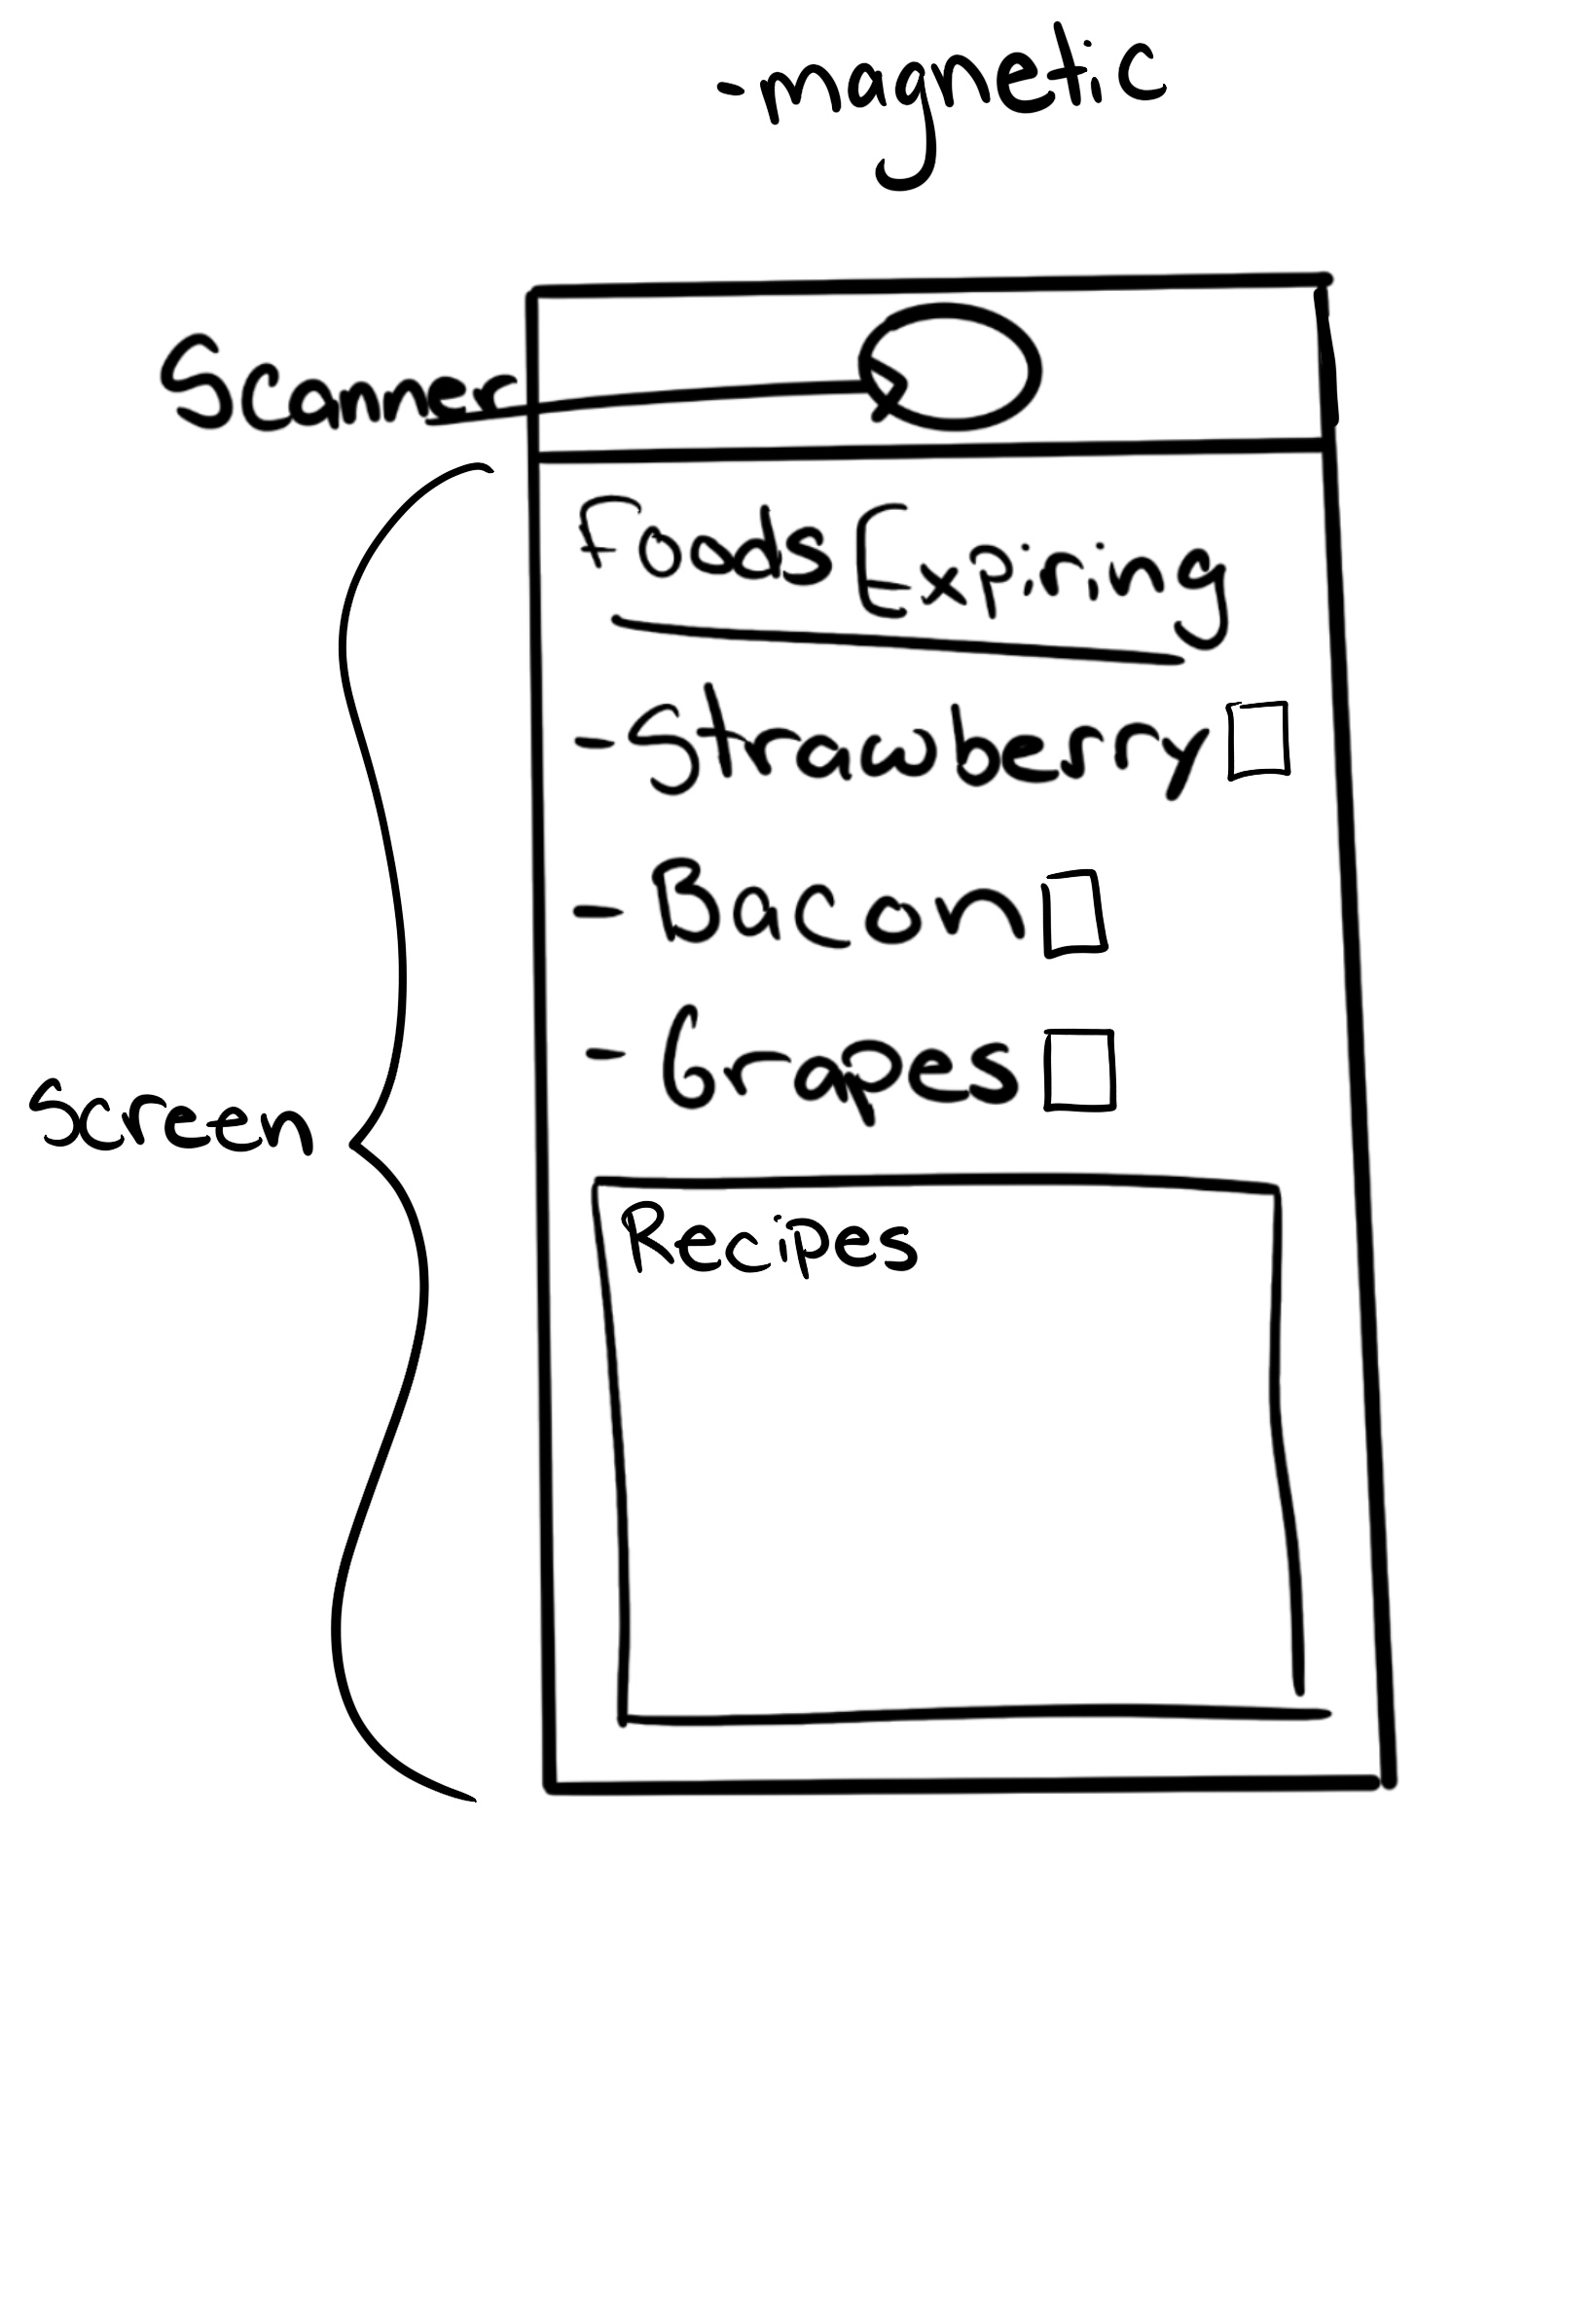 -magnetic
Scanner
Foods Expiring
-Strawberry
- Bacon
- Grapes
Screen
Recipes